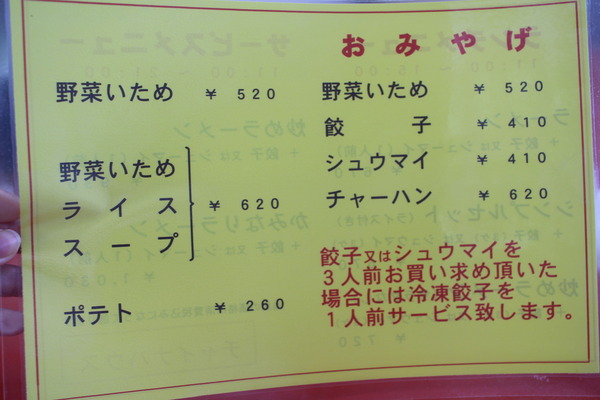 野菜いため ¥ 520
野菜いため
ライス ¥ 620
スープ
ポテト ¥ 260
おみやげ
野菜いため ¥ 520
餃子 ¥ 410
シュウマイ ¥ 410
チャーハン ¥ 620
餃子又はシュウマイを
3人前お買い求め頂いた
場合には冷凍餃子を
1人前サービス致します。